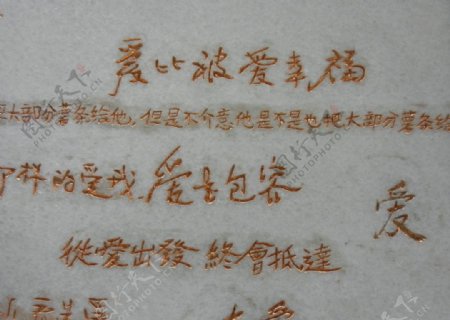 爱比被爱幸福
大部分薯条给他，但是不介意他是不是也把大部分薯条给
样的爱我 爱是包容
爱
從愛出發 終會抵達